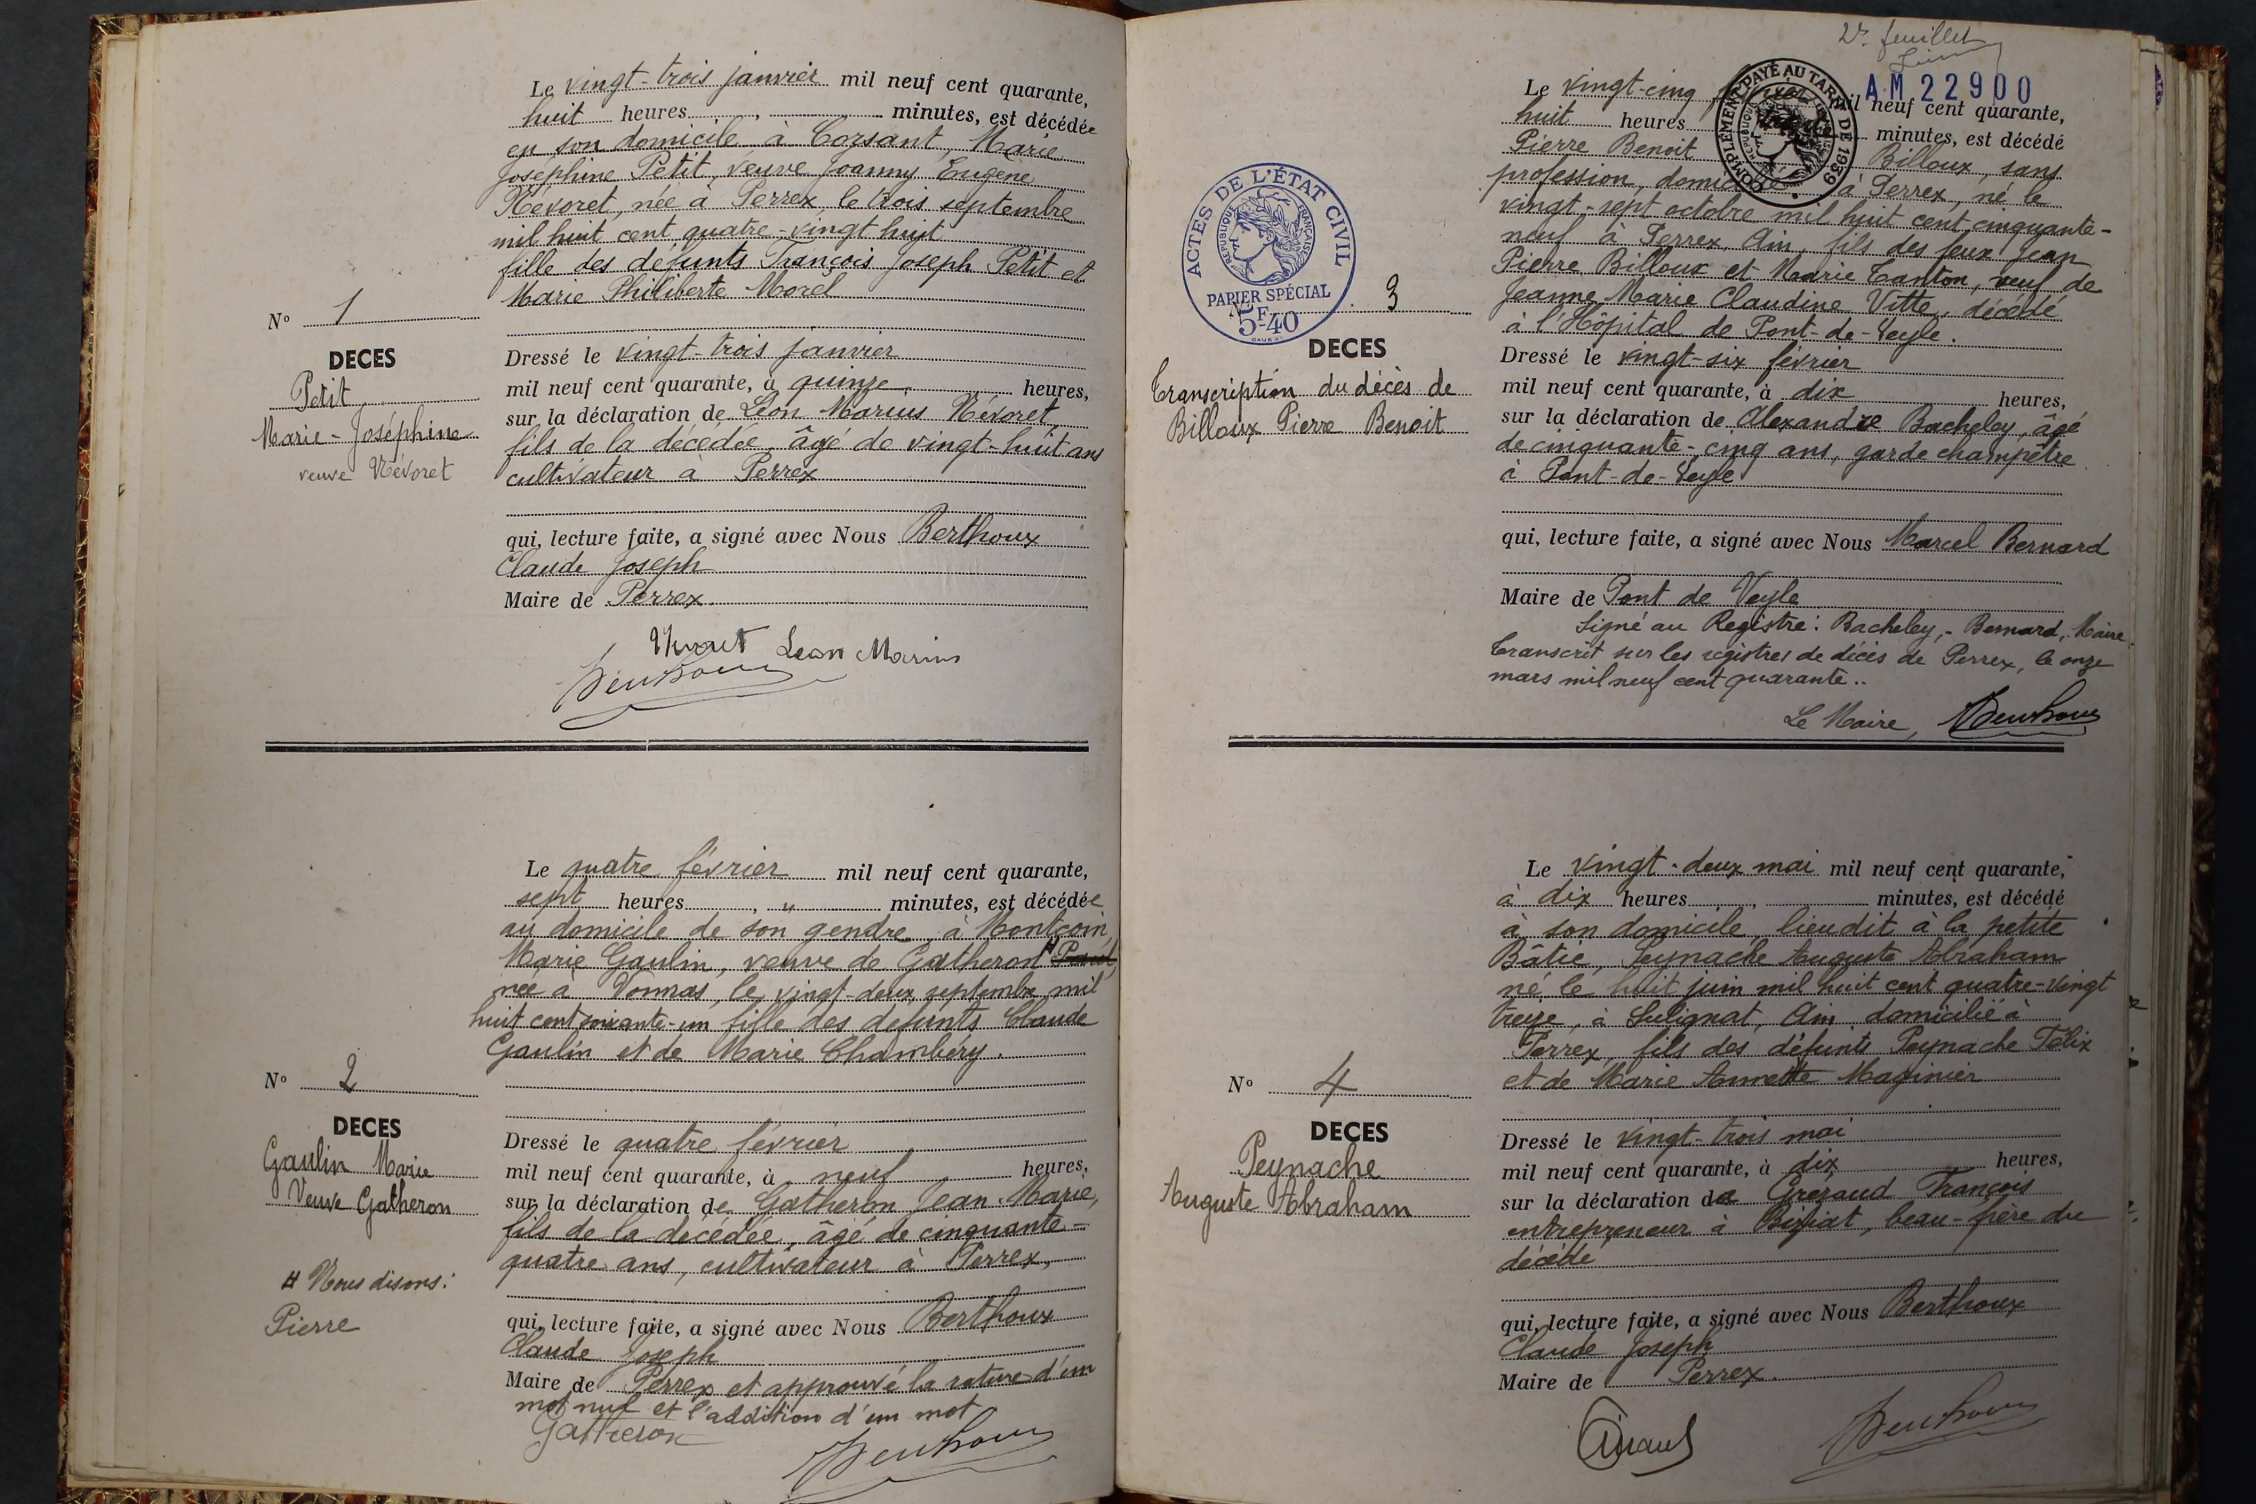 Le vingt-trois janvier mil neuf cent quarante,
huit heures , minutes, est décédée
en son domicile à Corsant, Marie
Joséphine Petit, veuve Joanny Eugène
Névoret, née à Perrex, le trois septembre
mil huit cent quatre-vingt huit
fille des défunts François Joseph Petit et
Marie Philiberte Morel
N° 1
DECES
Petit
Marie-Joséphine
veuve Névoret
Dressé le vingt-trois janvier
mil neuf cent quarante, à quinze heures,
sur la déclaration de Léon Marius Névoret,
fils de la décédée, âgé de vingt-huit ans
cultivateur à Perrex
qui, lecture faite, a signé avec Nous Berthoux
Claude Joseph
Maire de Perrex.
Léon Marius
Le quatre février mil neuf cent quarante,
sept heures , " minutes, est décédée
au domicile de son gendre, à Montcoin,
Marie Gaulin, veuve de Gatheron
née à Vonnas, le vingt-deux septembre mil
huit cent soixante-un fille des défunts Claude
Gaulin et de Marie Chambéry.
N° 2
DECES
Gaulin Marie
Veuve Gatheron
# Nous disons:
Pierre
Dressé le quatre février
mil neuf cent quarante, à neuf heures,
sur la déclaration de Gatheron Jean-Marie,
fils de la décédée, âgé de cinquante-
quatre ans, cultivateur à Perrex,
qui, lecture faite, a signé avec Nous Berthoux
Claude Joseph
Maire de Perrex et approuvé la rature d'un
mot nul et l'addition d'un mot
Gatheron
Berthoux
2e feuillet
AM 22900
COMPLÉMENT PAYÉ AU TARIF DE 1939
Le vingt-cinq mil neuf cent quarante,
huit heures minutes, est décédé
Pierre Benoit Billoux, sans
profession, domicilié à Perrex, né le
vingt-sept octobre mil huit cent cinquante-
neuf à Perrex, Ain, fils des feux Jean
Pierre Billoux et Marie Canton, veuf de
Jeanne Marie Claudine Vitte, décédé
à l'Hôpital de Pont-de-Veyle.
ACTES DE L'ÉTAT CIVIL
RÉPUBLIQUE FRANÇAISE
PAPIER SPÉCIAL
5F.40
3
DECES
Transcription du décès de
Billoux Pierre Benoit
Dressé le vingt-six février
mil neuf cent quarante, à dix heures,
sur la déclaration de Alexandre Bacheley, âgé
de cinquante-cinq ans, garde champêtre
à Pont-de-Veyle
qui, lecture faite, a signé avec Nous Marcel Bernard
Maire de Pont de Veyle
Signé au Registre: Bacheley, - Bernard, Maire.
Transcrit sur les registres de décès de Perrex, le onze
mars mil neuf cent quarante..
Le Maire, Berthoux
Le vingt-deux mai mil neuf cent quarante,
à dix heures , minutes, est décédé
à son domicile, lieudit à la petite
Bâtie, Peynache Auguste Abraham
né le huit juin mil huit cent quatre-vingt
treize, à Sulignat, Ain, domicilié à
Perrex, fils des défunts Peynache Félix
et de Marie Annette Maginier
N° 4
DECES
Peynache
Auguste Abraham
Dressé le vingt-trois mai
mil neuf cent quarante, à dix heures,
sur la déclaration de François
entrepreneur à Biziat, beau-frère du
décédé
qui, lecture faite, a signé avec Nous Berthoux
Claude Joseph
Maire de Perrex.
Berthoux